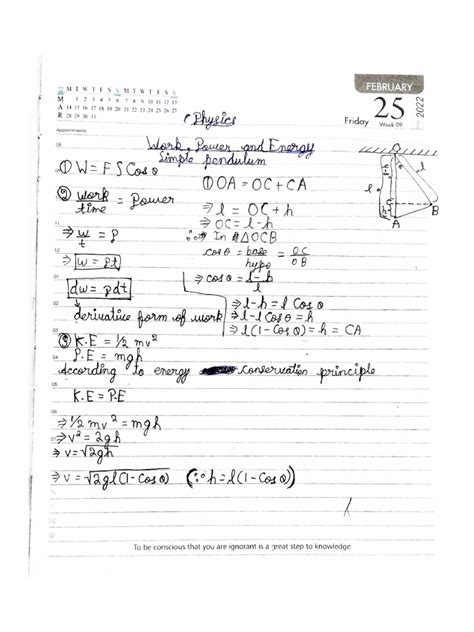 M T W T F S S M T W T F S S
M 1 2 3 4 5 6 7 8 9 10 11 12 13
A 14 15 16 17 18 19 20 21 22 23 24 25 26 27
R 28 29 30 31
FEBRUARY
25
Friday Week 09
2022
Appointments
Physics
09
Work, Power and Energy
Simple pendulum
① W = F S Cos θ
① OA = OC + CA
② work/time = Power
⇒ l = OC + h
⇒ OC = l - h
11
⇒ w/t = P
∴ In △OCB
cos θ = base/hypo = OC/OB
12
⇒ w = pt
⇒ cos θ = l-h/l
01
dw = pdt
⇒ l-h = l Cos θ
02
⇒ l - l Cos θ = h
derivative form of work
⇒ l(1 - Cos θ) = h = CA
③ K.E = 1/2 mv²
04
P.E = mgh
According to energy conservation principle
05
K.E = P.E
⇒ 1/2 mv² = mgh
⇒ v² = 2gh
⇒ v = √2gh
⇒ v = √2gl(1 - Cos θ) (∵ h = l(1 - Cos θ)
O
l
l-h
l
C
h
A
B
To be conscious that you are ignorant is a great step to knowledge.